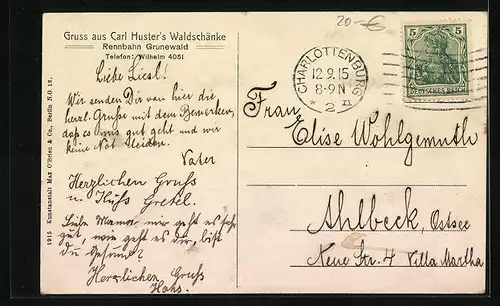 20-€
Gruss aus Carl Huster's Waldschänke
Rennbahn Grunewald
Telefon: Wilhelm 4051
Liebe Liesl!
Wir senden Dir von hier die
herzl. Grüße mit dem Bemerken,
daß es uns gut geht und wir
keine Not leiden.
Vater
Herzlichen Gruß
u. Kuß Gretel.
Liebe Mama mir geht es sehr
gut, wie geht es dir, bist
du gesund?
Herzlichen Gruß
Hans.
1915 Kunstanstalt Max O'Brien & Co., Berlin N.O. 18.
CHARLOTTENBURG
12.9.15
8-9N
* 2 n
5 5
DEUTSCHES REICH
Frau
Elise Wohlgemuth
Ahlbeck, Ostsee
Neue Str. 4 Villa Martha